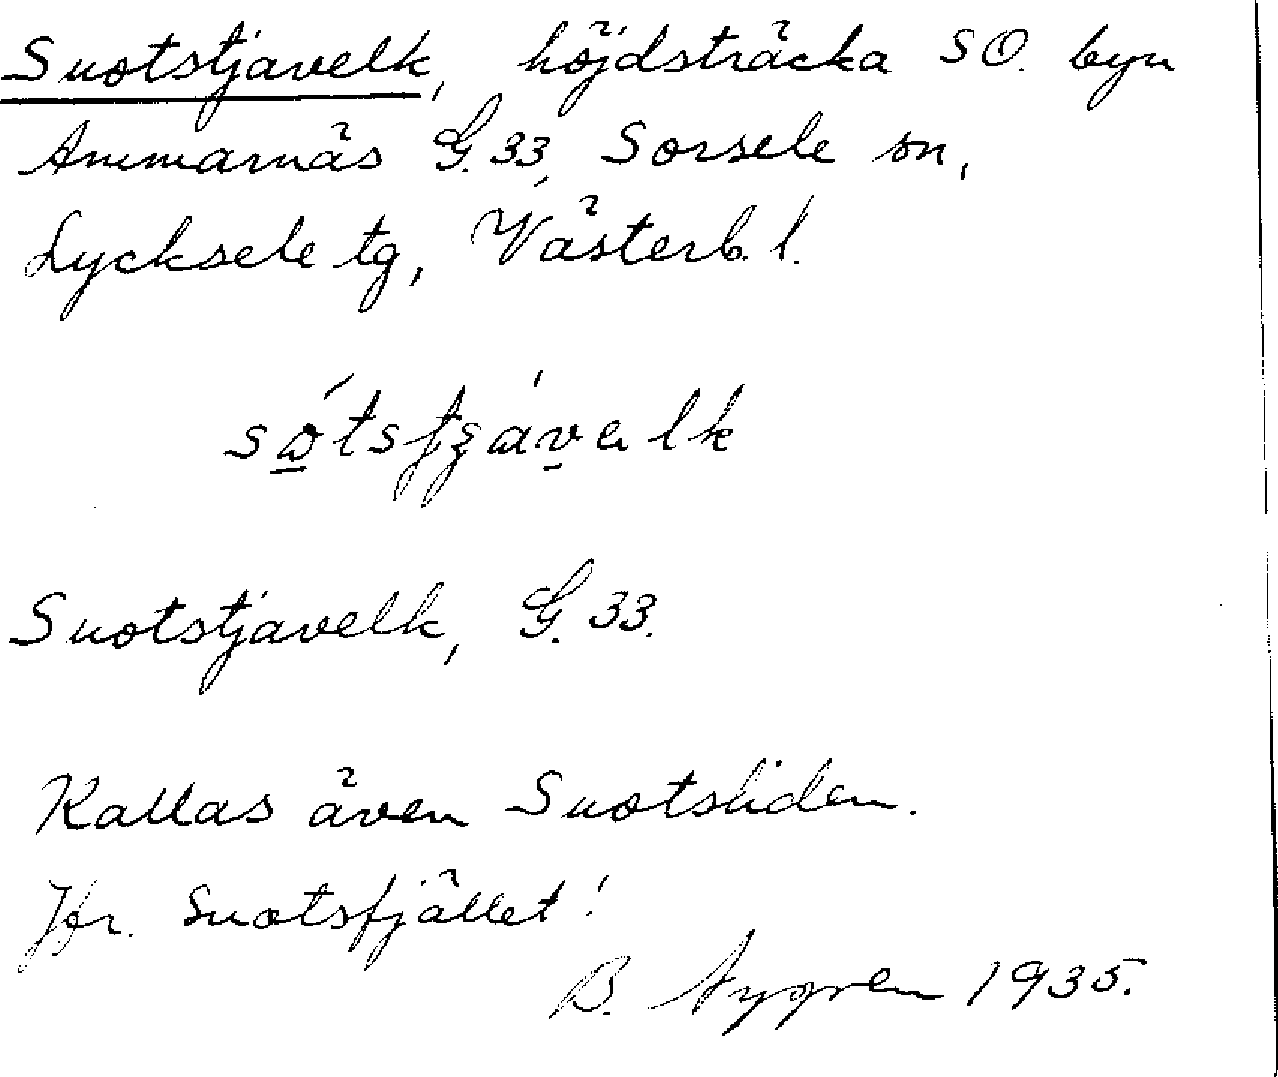 Suotstjavelk, höjdsträcka SO. byn
Ammarnäs G. 33, Sorsele sn,
Lycksele tg, Västerb. l.
Suotstjavelk, G. 33.
Kallas även Suotsliden.
Jfr. Suotsfjället!
B. Nygren 1935.